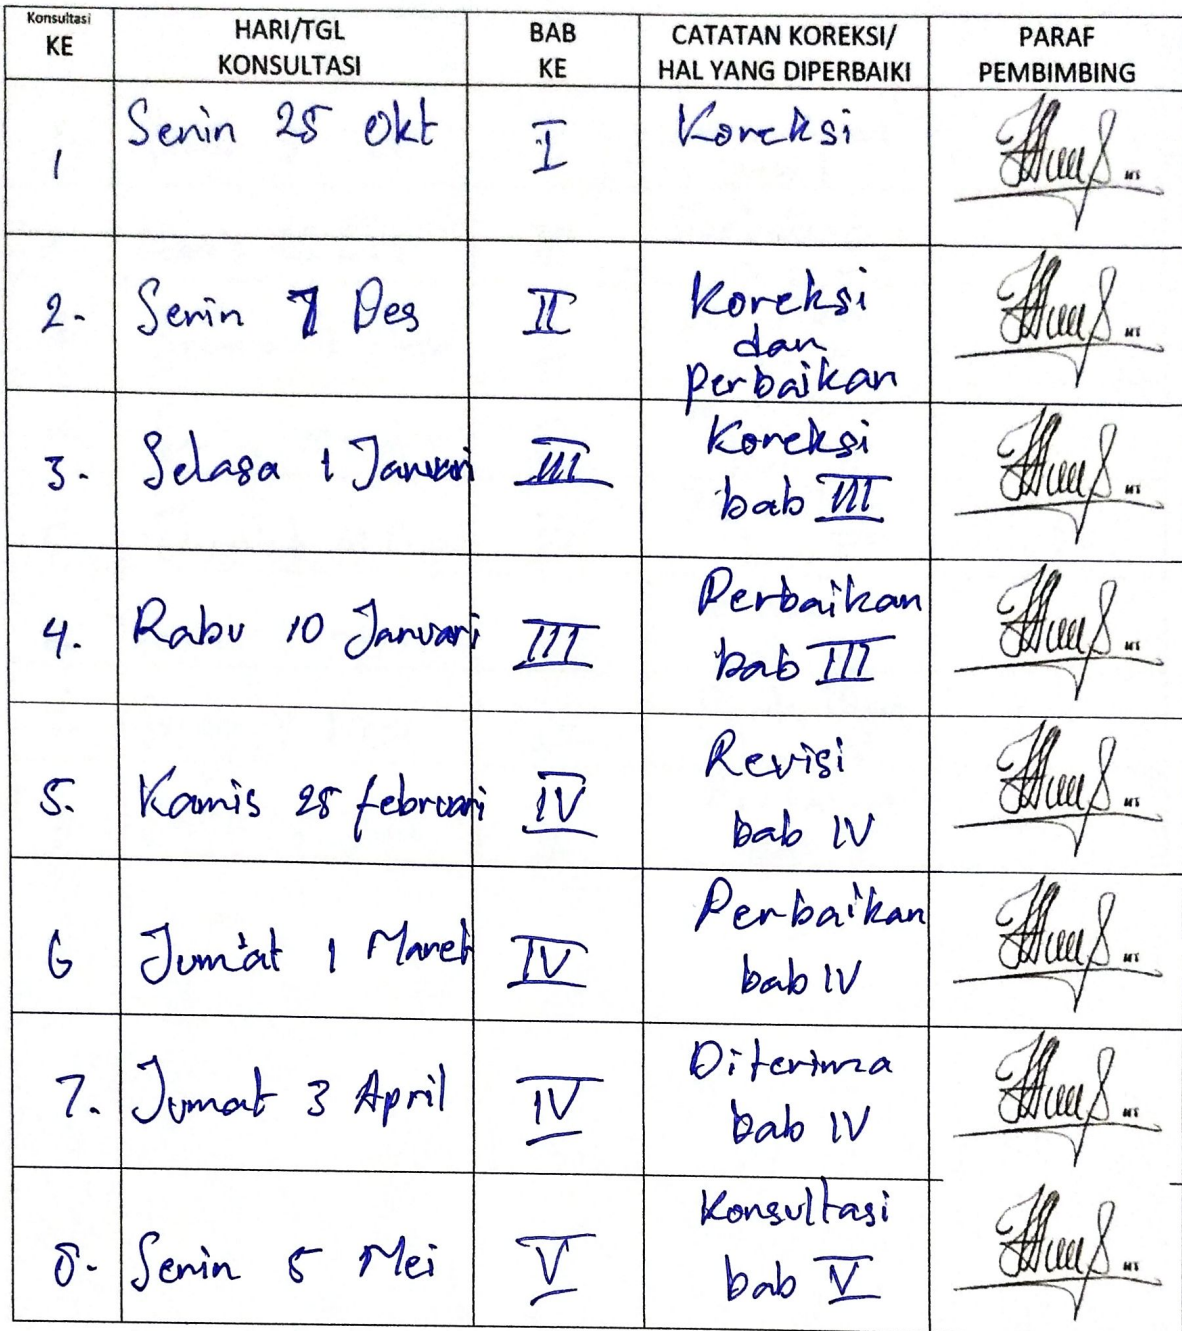 Konsultasi KE HARI/TGL KONSULTASI BAB KE CATATAN KOREKSI/ HAL YANG DIPERBAIKI PARAF PEMBIMBING
1 Senin 25 Okt I Koreksi
2. Senin 7 Des II Koreksi
dan
perbaikan
3. Selasa 1 Januari III Koreksi
bab III
4. Rabu 10 Januari III Perbaikan
bab III
5. Kamis 25 februari IV Revisi
bab IV
6 Jum'at 1 Maret IV Perbaikan
bab IV
7. Jumat 3 April IV Diterima
bab IV
8. Senin 5 Mei V Konsultasi
bab V